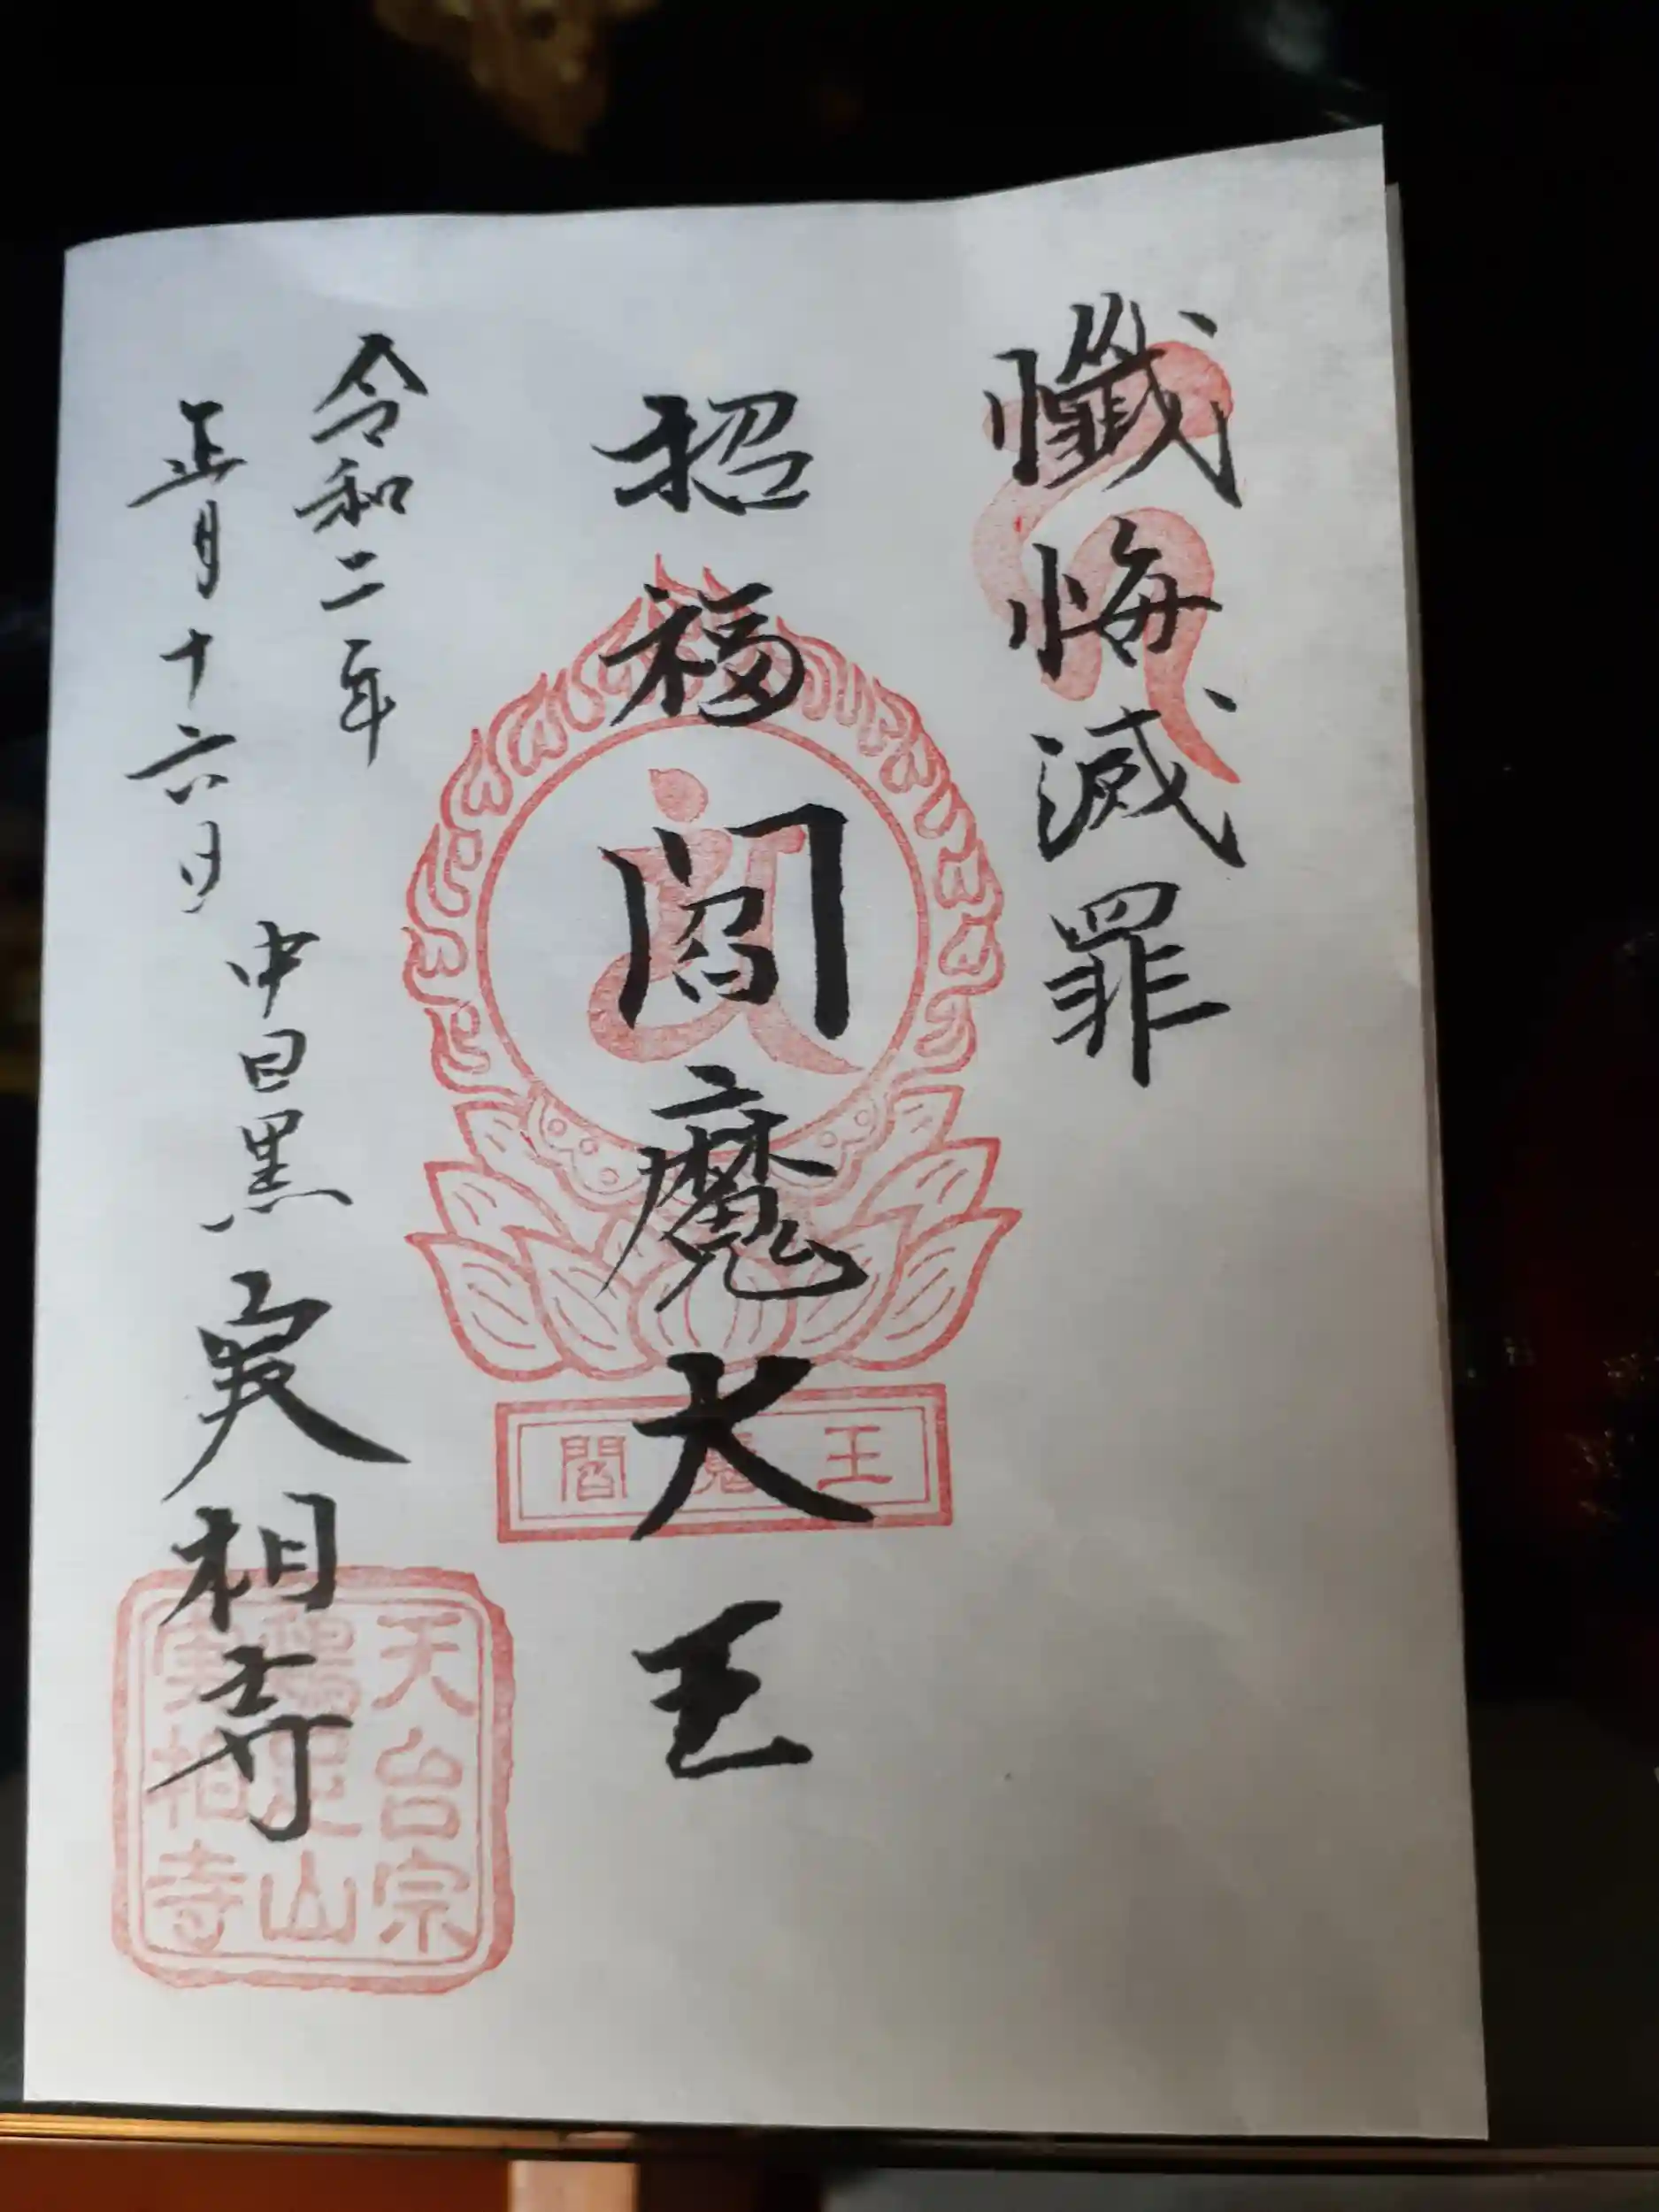 懺悔滅罪
招福
閻魔大王
閻魔王
令和二年
正月十六日
中目黒
実相寺
天台宗
鶏足山
実相寺